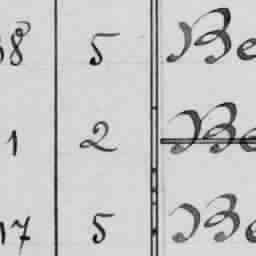 38 5 Be
1 2 Be
17 5 Be